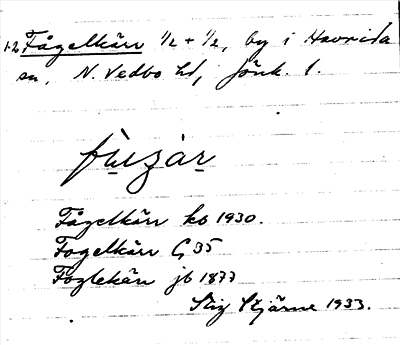 1-2 Fågelkärr 1/2 + 1/2, by i Haurida
sn, N. Vedbo hd, Jönk. l.
fùʒàr
Fågelkärr kb 1930.
Fogelkärr G 35
Foglekärr jb 1877
Stig Stjärne 1933.